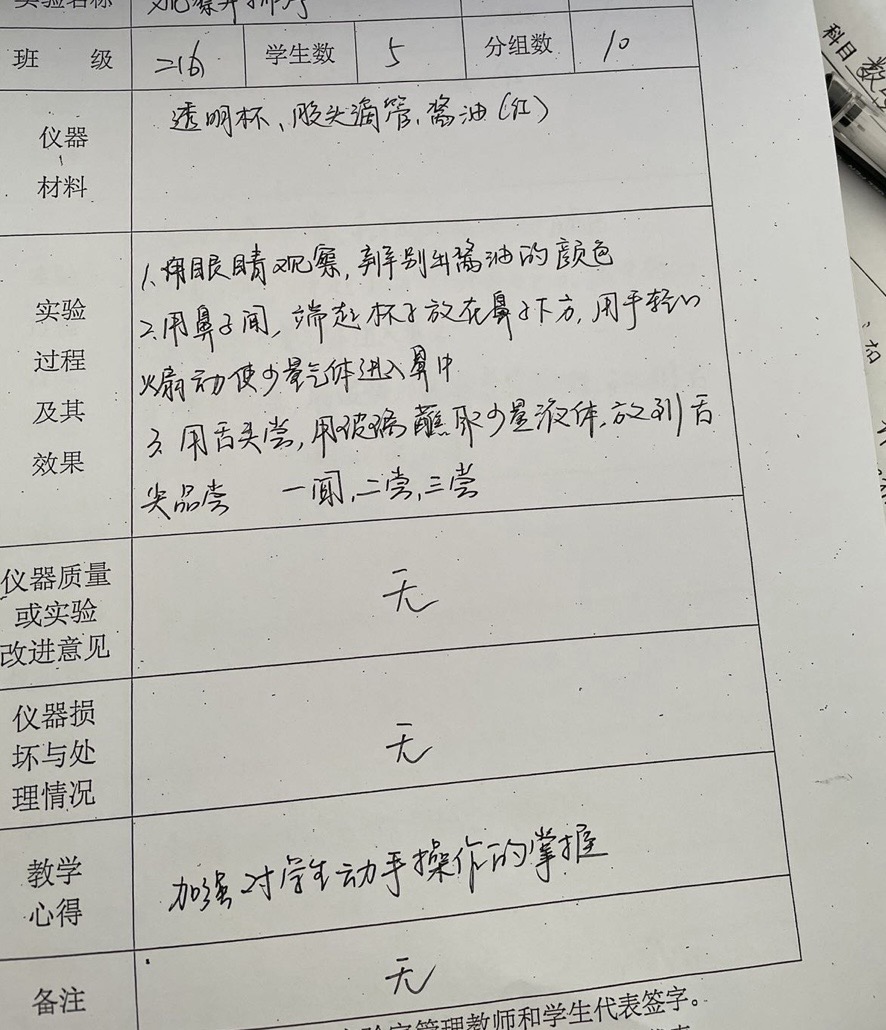 实验名称
班 级 二(6) 学生数 5 分组数 10
科目 数
透明杯、胶头滴管、酱油(红)
仪器
材料
1.用眼睛观察,辨别出酱油的颜色
实验
2.用鼻子闻,端起杯子放在鼻子下方,用手轻轻
过程
煽动使少量气体进入鼻中
及其
3.用舌头尝,用玻璃蘸取少量液体,放到舌
效果
尖品尝 一闻,二尝,三尝
仪器质量
或实验
改进意见
无
仪器损
坏与处
理情况
无
教学
心得
加强对学生动手操作的掌握
备注
无
管理教师和学生代表签字。